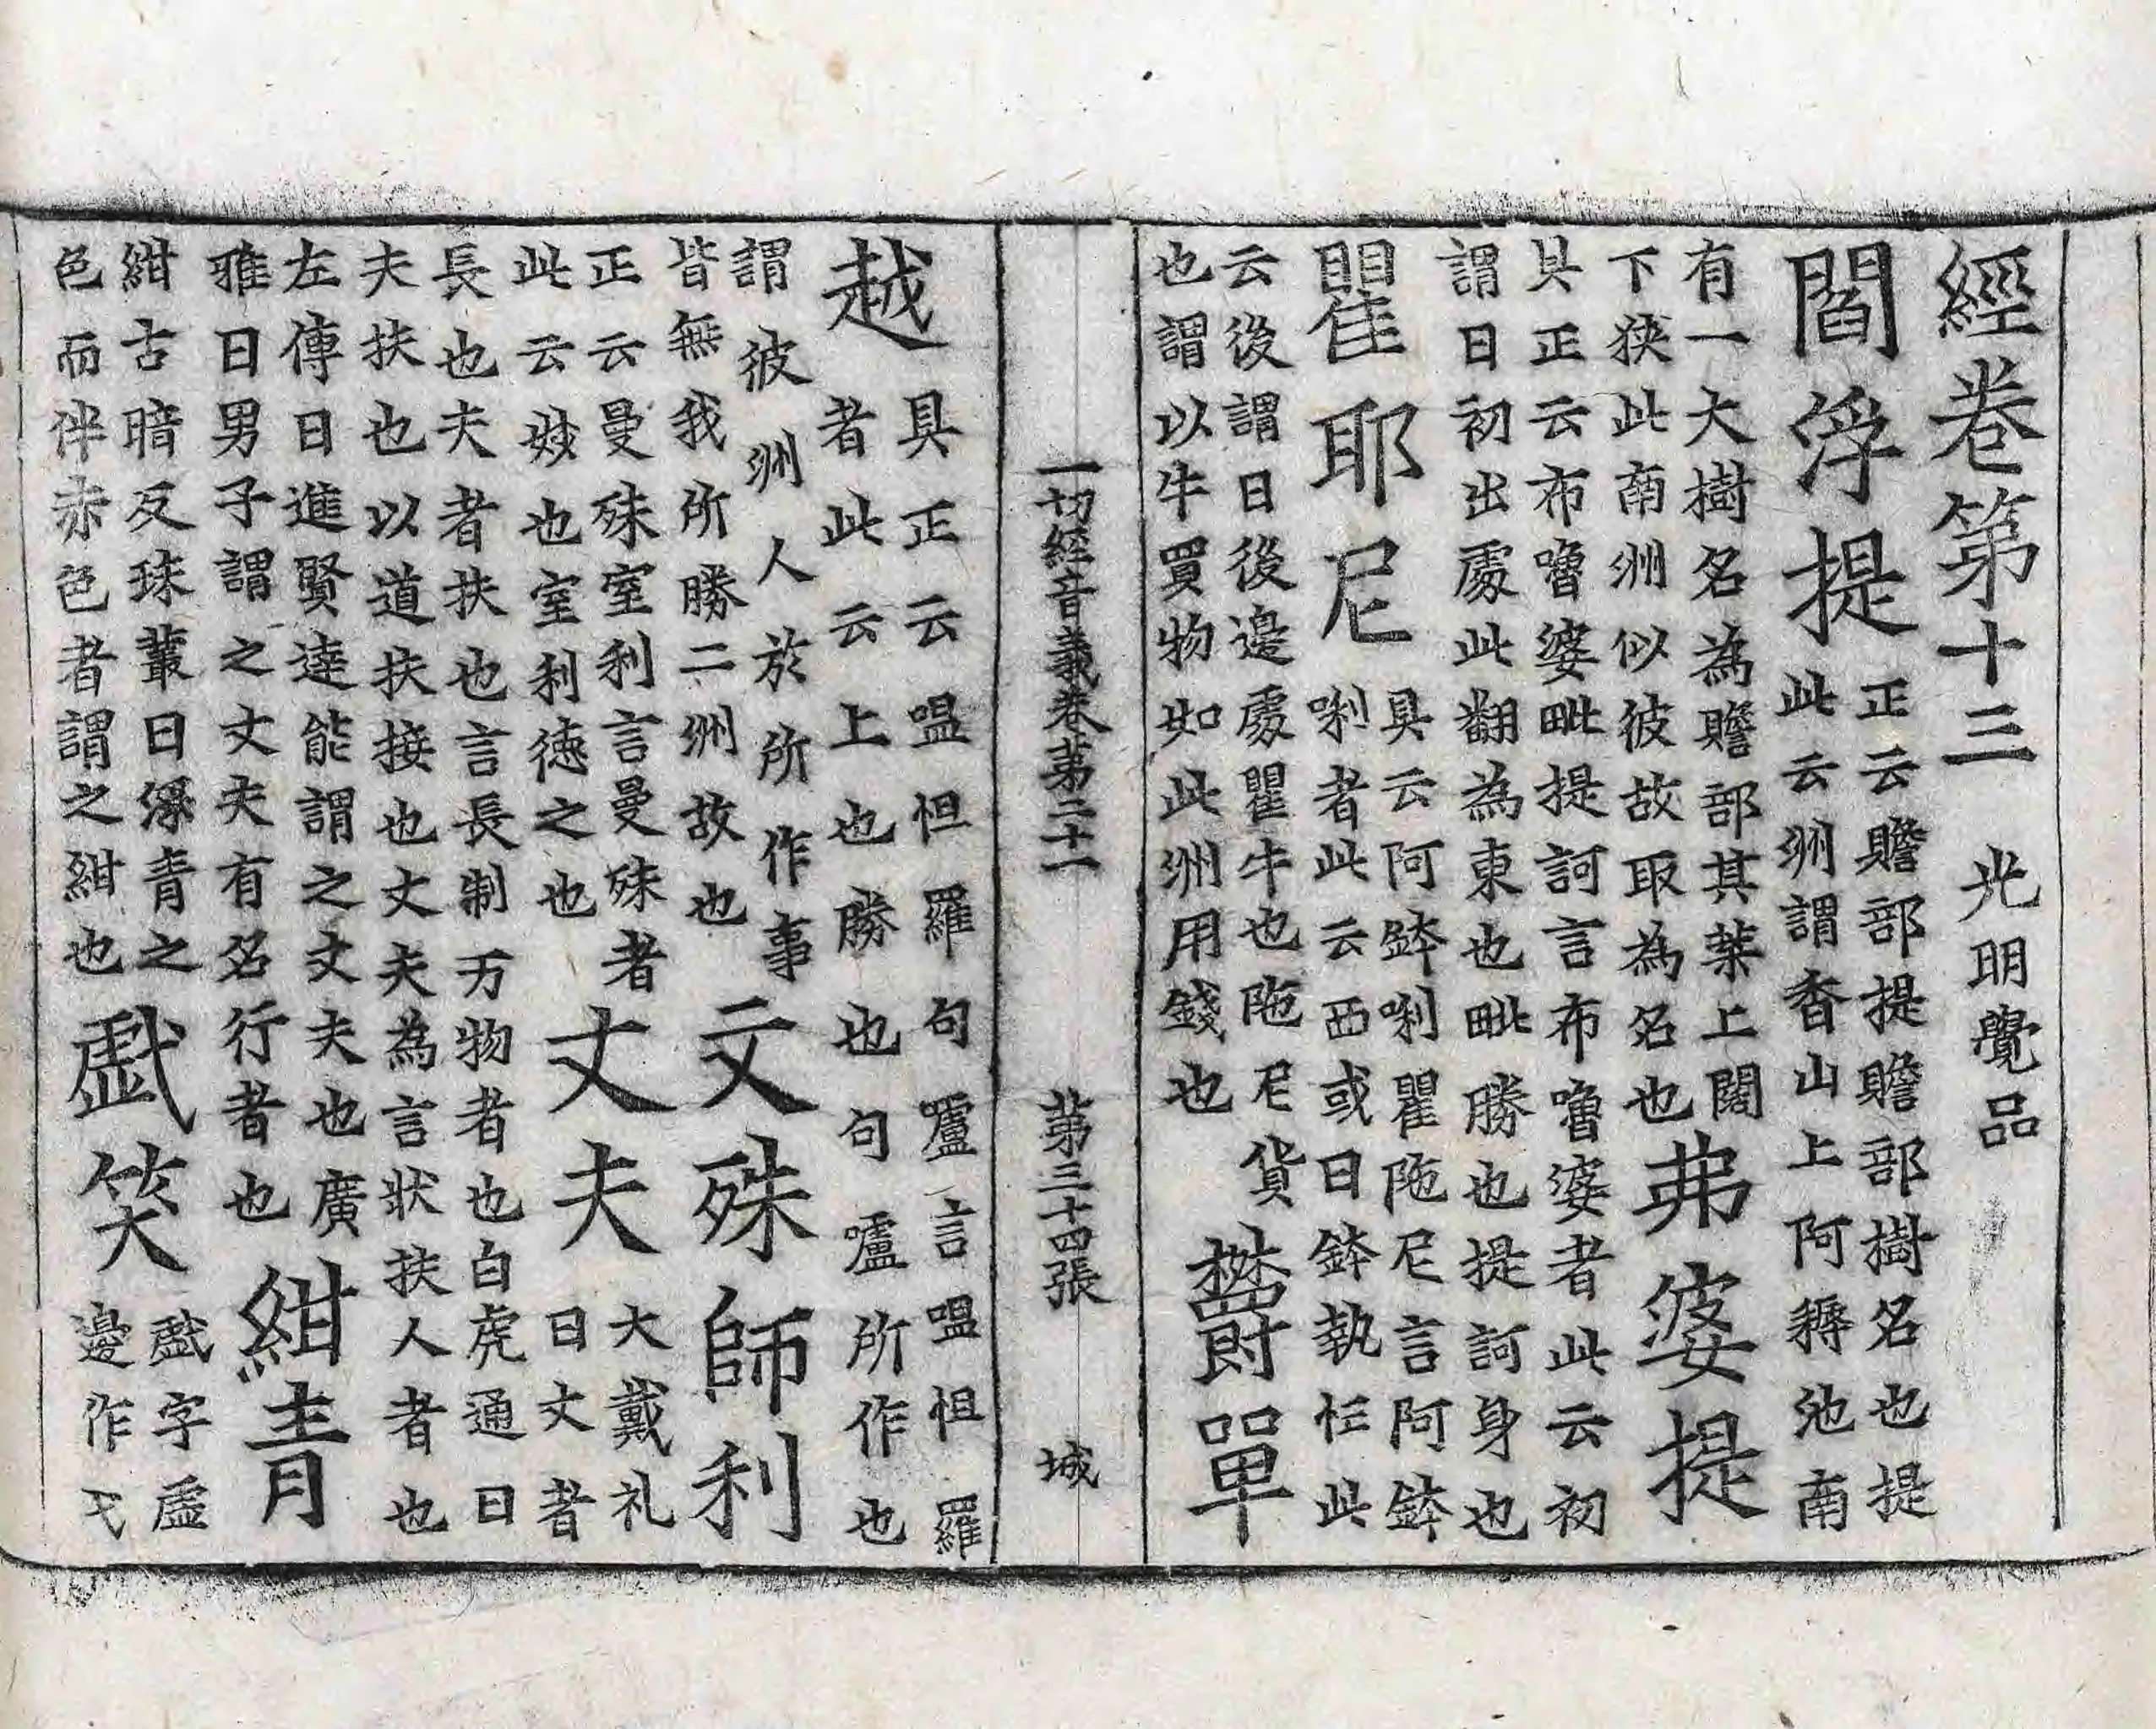 經卷第十三 光明覺品
閻浮提
正云贍部提贍部樹名也提
此云洲謂香山上阿耨池南
有一大樹名為贍部其葉上闊
下狹此南洲似彼故取為名也
弗婆提
具正云布嚕婆毗提訶言布嚕婆者此云初
謂日初出處此翻為東也毗勝也提訶身也
瞿耶尼
具云阿鉢唎瞿陁尼言阿鉢
唎者此云西或曰鉢執忹此
云後謂日後邊處瞿牛也陁尼貨
也謂以牛買物如此洲用錢也
欝單
一切經音義卷第二十一 第三十四張 城
越
具正云嗢怛羅句嚧言嗢怛羅
者此云上也勝也句嚧所作也
謂彼洲人於所作事
皆無我所勝二洲故也
文殊師利
正云曼殊室利言曼殊者
此云妙也室利德之也
丈夫
大戴礼
曰丈者
長也夫者扶也言長制万物者也白虎通曰
夫扶也以道扶接也丈夫為言狀扶人者也
左傳曰進賢達能謂之丈夫也廣
雅曰男子謂之丈夫有名行者也
紺青
紺古暗反珠叢曰深青之
色而伴赤色者謂之紺也
戱笑
戱字虛
邊作弋